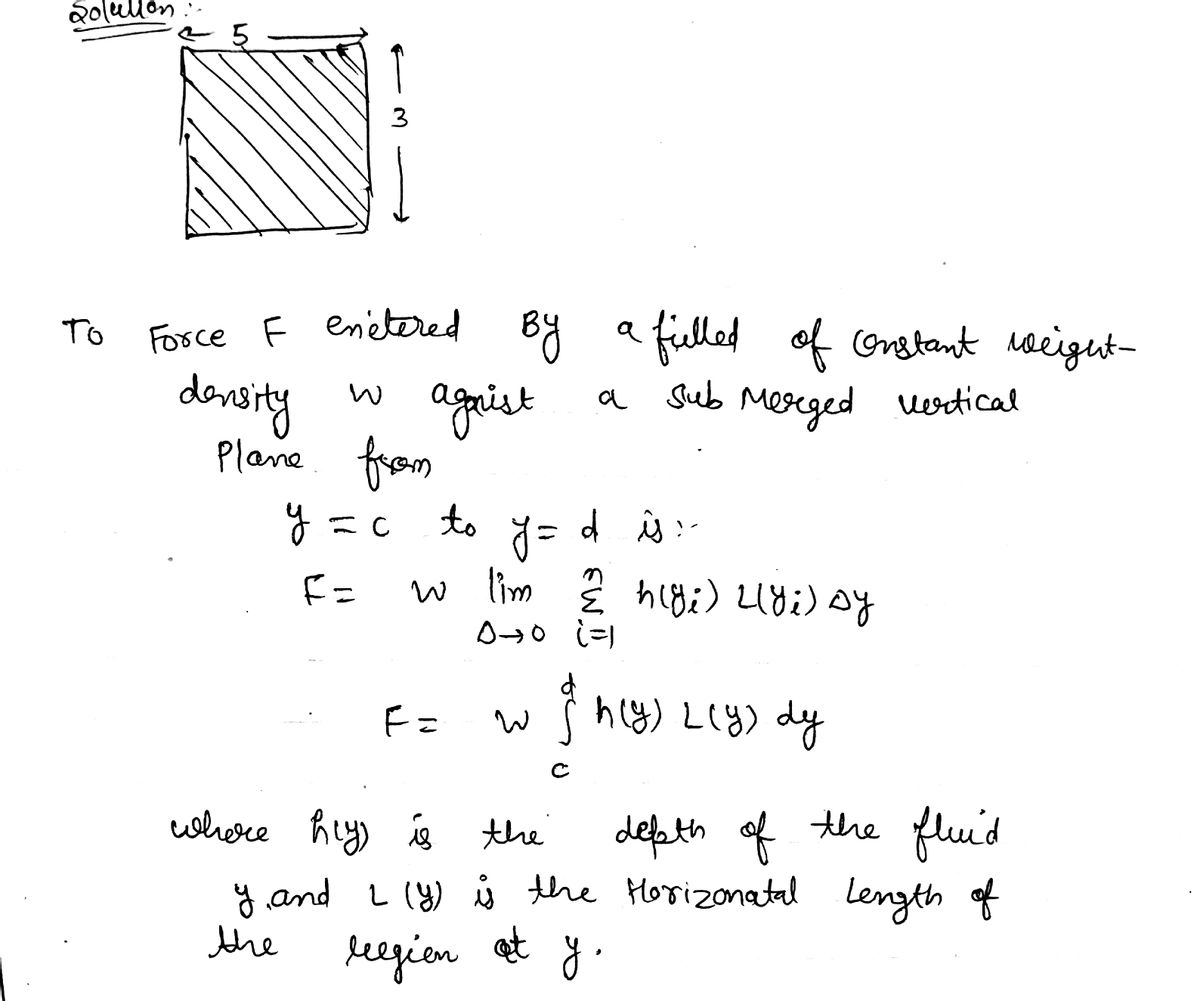 Solution :-
5
3
To Force F enetered By a fielled of Constant weight-
density w agnist a Sub Merged vertical
Plane from
y = c to y = d is :-
F = w lim n Σ h(yi) L(yi) Δy
Δ→0 i=1
F = w ∫ d c h(y) L(y) dy
where h(y) is the depth of the fluid
y, and L(y) is the Horizonatal Length of
the region at y.